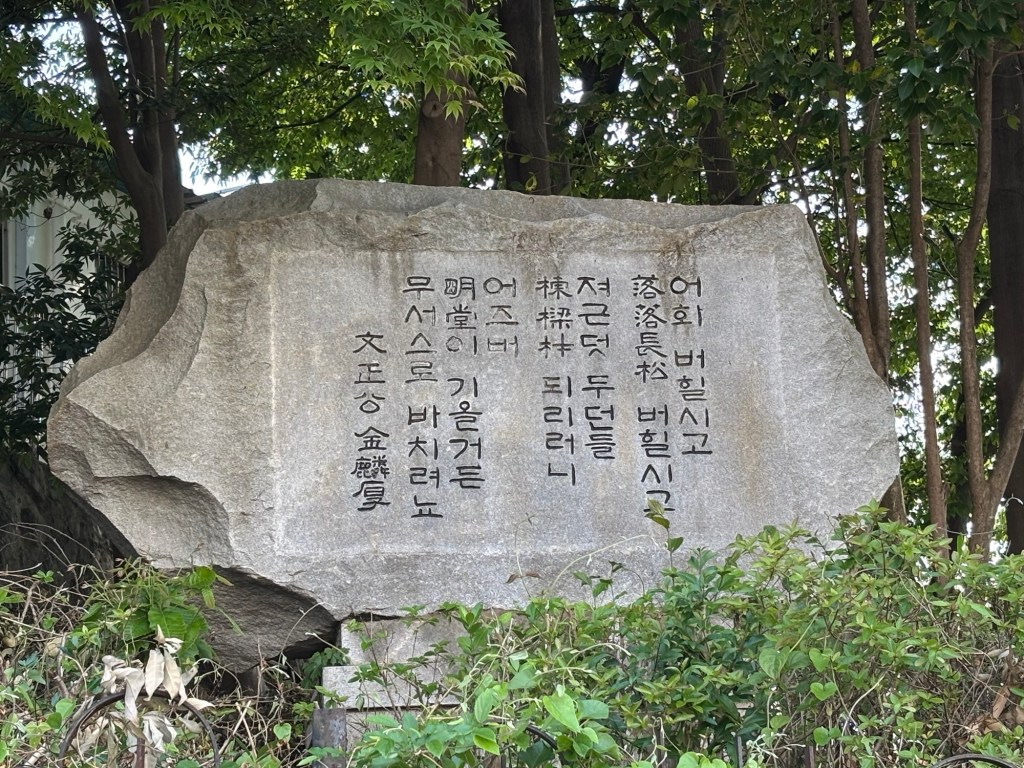 어화 버힐시고
落落長松 버힐시고
져근덧 두던들
棟樑材 되리러니
어즈버
明堂이 기올거든
무서스로 바치려뇨
文正公 金麟厚